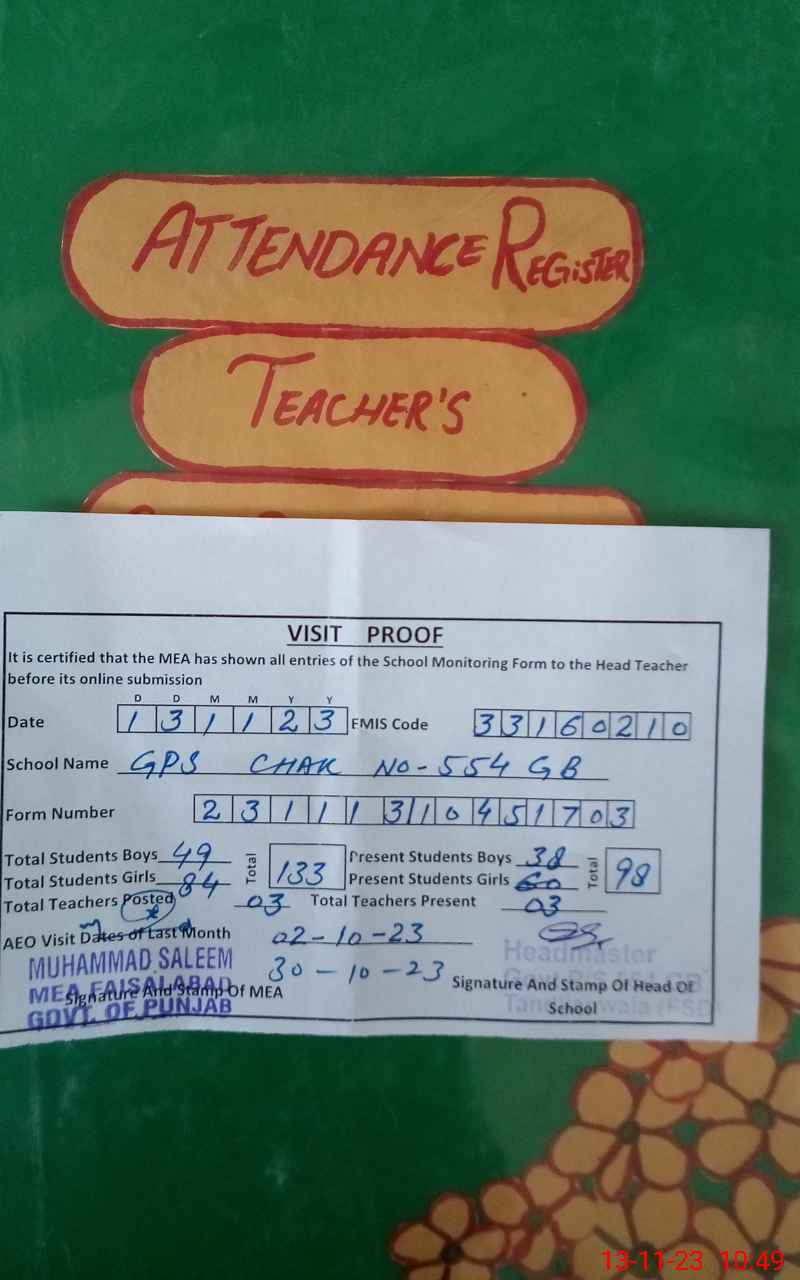 ATTENDANCE REGISTER
TEACHER'S
VISIT PROOF
It is certified that the MEA has shown all entries of the School Monitoring Form to the Head Teacher
before its online submission
D D M M Y Y
Date 1 3 1 1 2 3 EMIS Code 3 3 1 6 0 2 1 0
School Name GPS CHAK NO-554 GB
Form Number 2 3 1 1 1 3 1 0 4 5 1 7 0 3
Total Students Boys 49 Total 133 Present Students Boys 38 Total 98
Total Students Girls 84 Present Students Girls 60
Total Teachers Posted 03 Total Teachers Present 03
AEO Visit Dates of Last Month 02-10-23
30-10-23
MUHAMMAD SALEEM
MEA FAISALABAD
GOVT. OF PUNJAB
Signature And Stamp Of MEA
Headmaster
Signature And Stamp Of Head Of
School
13-11-23 10:49